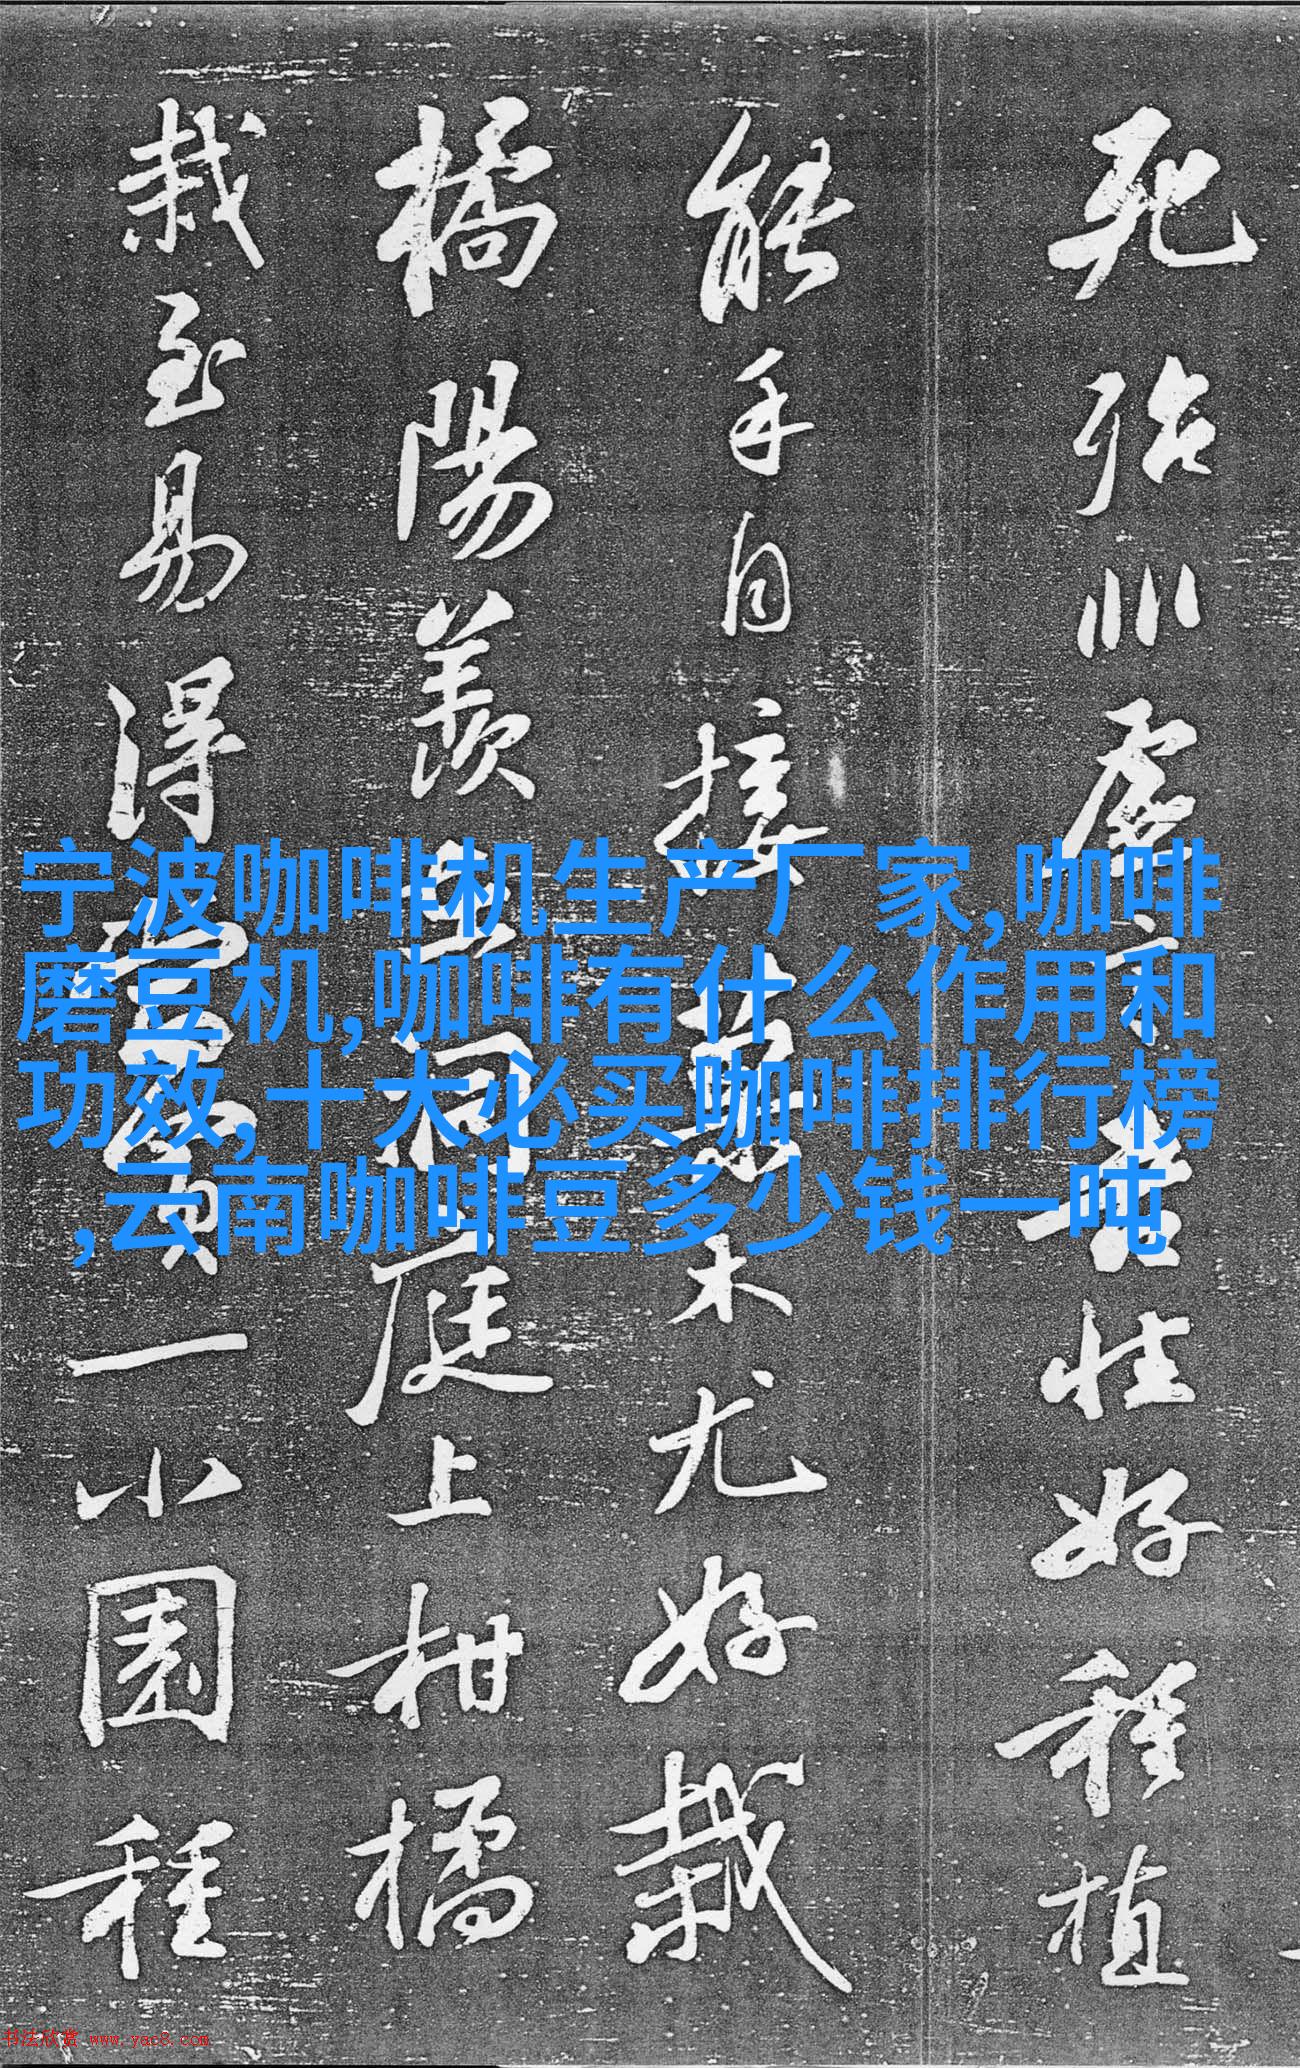 宁波咖啡机生产厂家,咖啡
磨豆机,咖啡有什么作用和
功效,十大必买咖啡排行榜
,云南咖啡豆多少钱一吨
死殆非虚言吾性好種植
能手自接菓木尤好栽
橘陽羨在洞庭上柑橘
栽至易得當買一小園種
书法欣赏 www.yac8.com